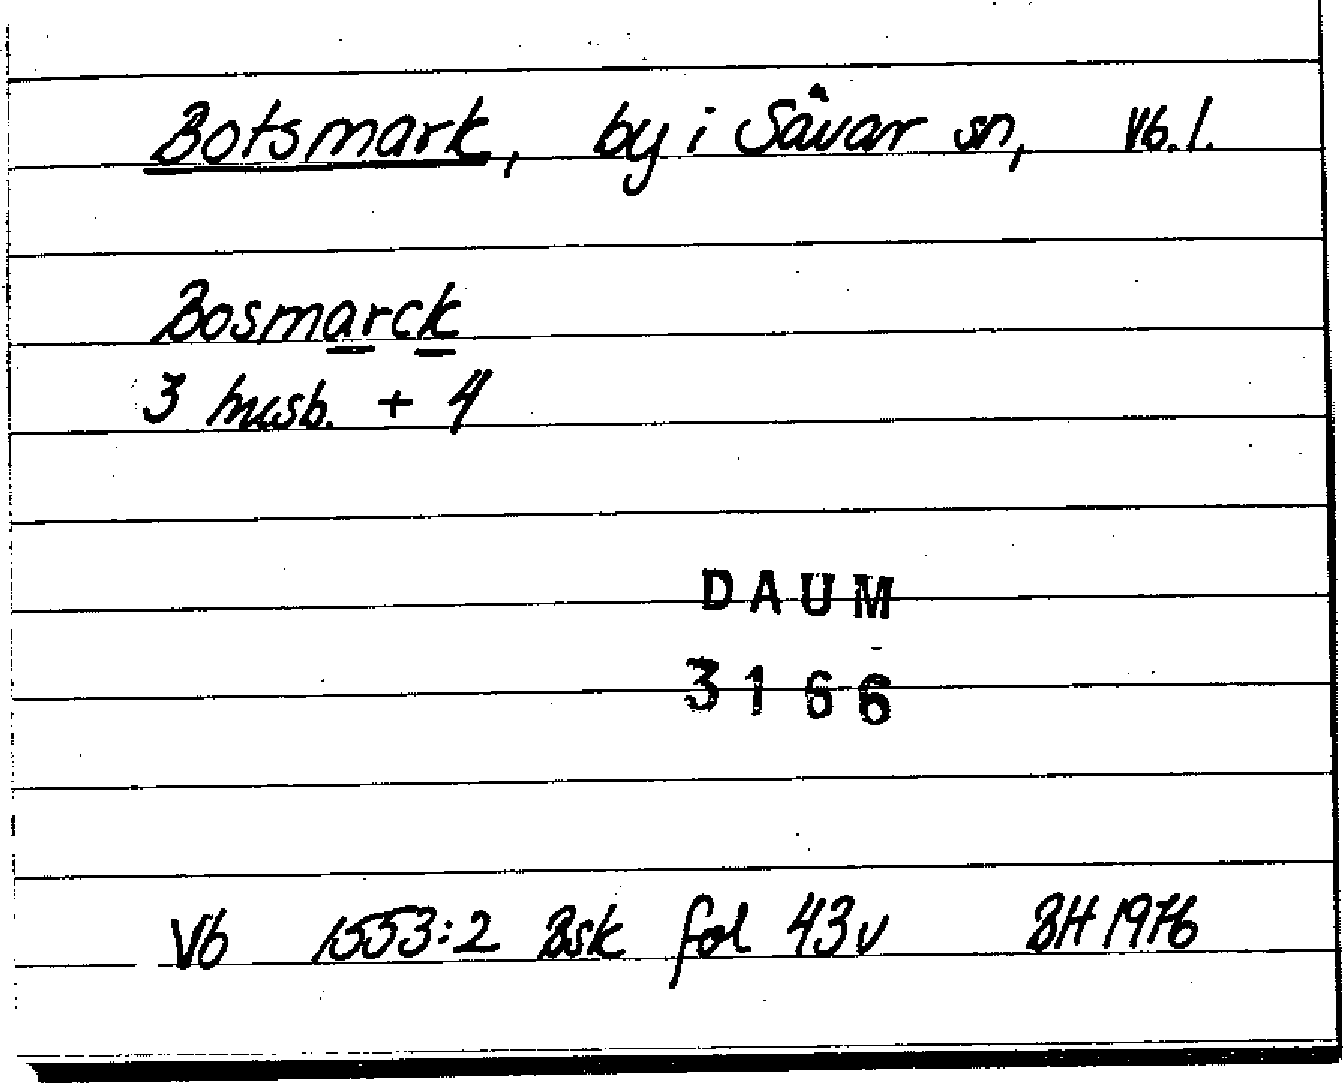 Botsmark, by i Sävar sn, Vb. l.
Bosmarck
3 husb. + 4
DAUM
3166
Vb 1553:2 Bsk fol 43v BH 1976